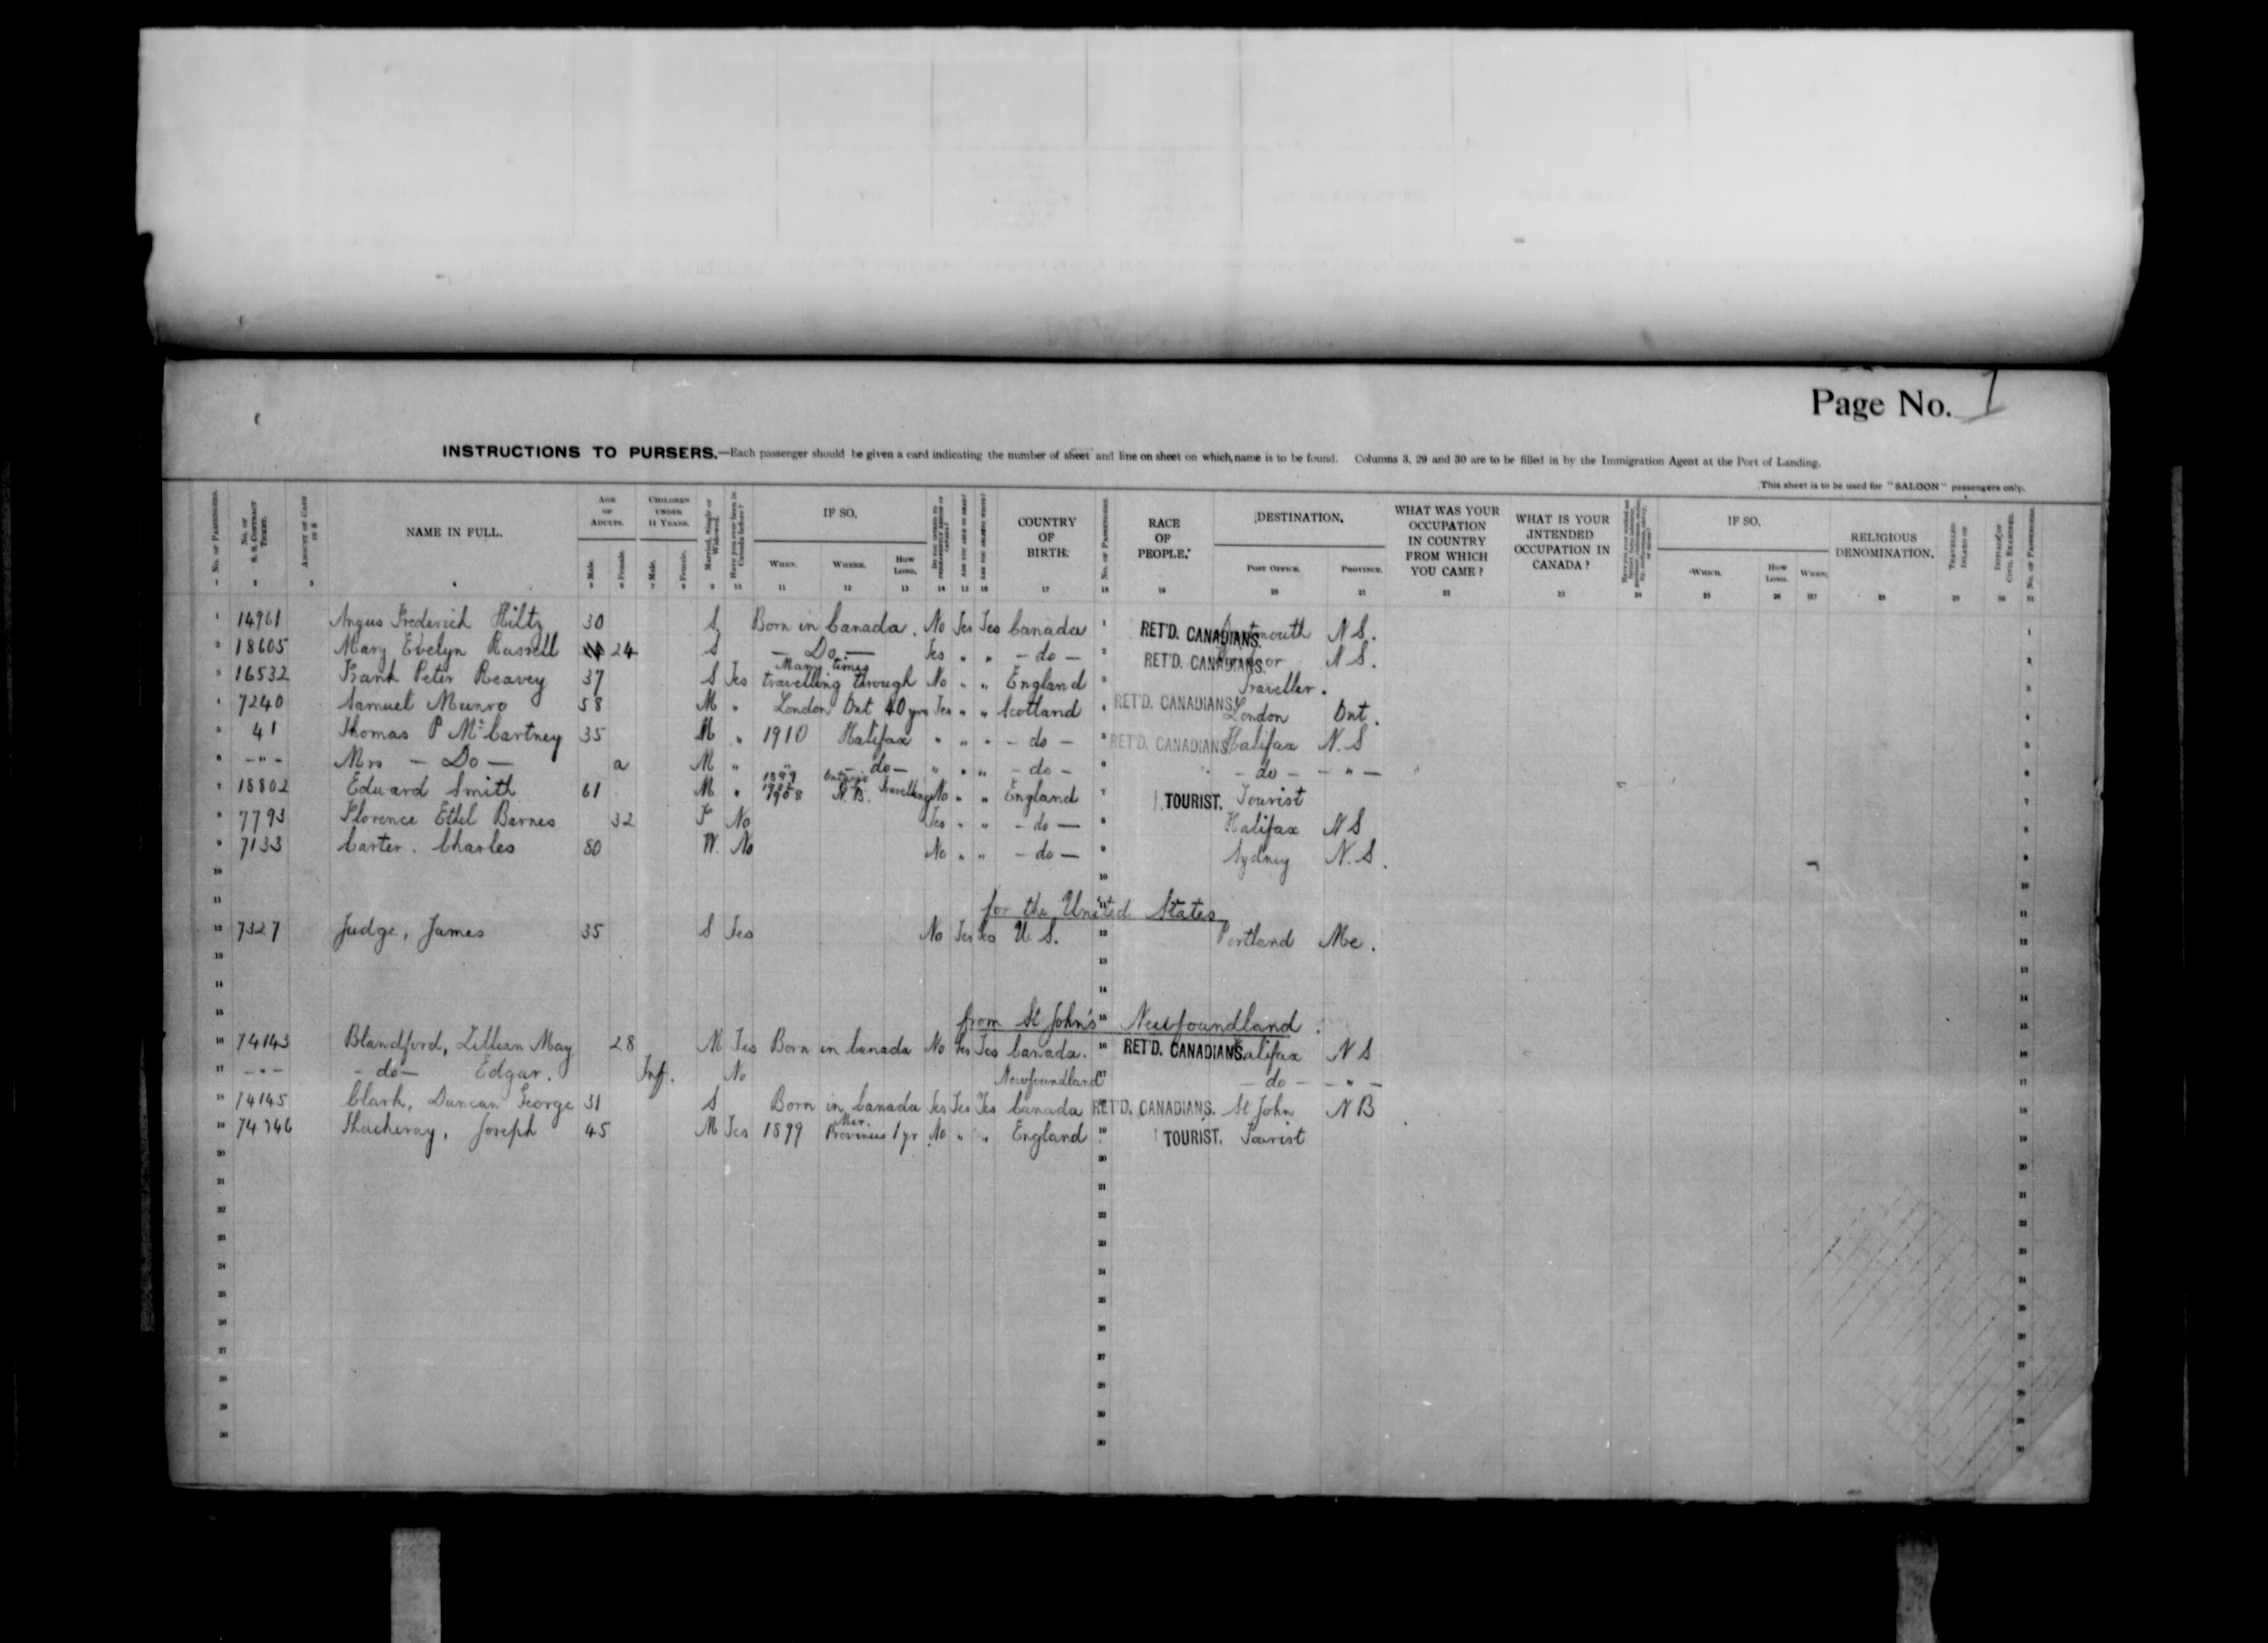 Page No. 1
INSTRUCTIONS TO PURSERS.—Each passenger should be given a card indicating the number of sheet and line on sheet on which name is to be found. Columns 3, 29 and 30 are to be filled in by the Immigration Agent at the Port of Landing.
This sheet is to be used for "SALOON" passengers only.
No. of Passengers. No. of S. S. Contract Ticket. Amount of Cash in $ NAME IN FULL. Age of Adults. Male. Female. Children under 14 Years. Male. Female. Married, Single or Widowed. Have you ever been in Canada before? IF SO, When. Where. How Long. Country of Birth. No. of Passengers. Race of People. DESTINATION. Post Office. Province. WHAT WAS YOUR OCCUPATION IN COUNTRY FROM WHICH YOU CAME? WHAT IS YOUR INTENDED OCCUPATION IN CANADA? IF SO, Which. How Long. When. RELIGIOUS DENOMINATION. No. of Passengers.
1 14961 Angus Frederick Hiltz 30 S Born in Canada. No Yes Yes Canada 1 RET'D. CANADIANS. Dartmouth N S. 1
2 18605 Mary Evelyn Russell 24 S — Do — Yes " " — do — 2 RET'D. CANADIANS. N S. 2
3 16532 Frank Peter Reavey 37 S Yes Many times travelling through No " " England 3 Traveller. 3
4 7240 Samuel Munro 58 M " London Ont 40 yrs Yes " " Scotland 4 RET'D. CANADIANS. London Ont. 4
5 41 Thomas P McCartney 35 M " 1910 Halifax " " " — do — 5 RET'D. CANADIANS. Halifax N. S 5
6 — " — Mrs — Do — a M " " — do — " " " — do — 6 — do — — " — 6
7 18802 Edward Smith 61 M " 1899 Ontario 1908 N. B. Travelling No " " England 7 TOURIST. Tourist 7
8 7793 Florence Ethel Barnes 32 No Yes " " — do — 8 Halifax N S 8
9 7133 Carter. Charles 80 W. No No " " — do — 9 Sydney N. S. 9
10 10 10
11 for the United States 11
12 7327 Judge, James 35 S Yes No Yes Yes U. S. 12 Portland Me. 12
13 13 13
14 14 14
15 from St John's 15 Newfoundland. 15
16 74143 Blandford, Lillian May 28 M Yes Born in Canada No Yes Yes Canada. 16 RET'D. CANADIANS. Halifax N S 16
17 — " — — do — Edgar. Inf. No Newfoundland 17 — do — — " — 17
18 74145 Clark, Duncan George 31 S Born in Canada Yes Yes Yes Canada RET'D. CANADIANS. St John N B 18
19 74146 Thackeray, Joseph 45 M Yes 1899 Mar. Provinces 1 yr No " " England 19 TOURIST. Tourist 19
20 20 20
21 21 21
22 22 22
23 23 23
24 24 24
25 25 25
26 26 26
27 27 27
28 28 28
29 29 29
30 30 30